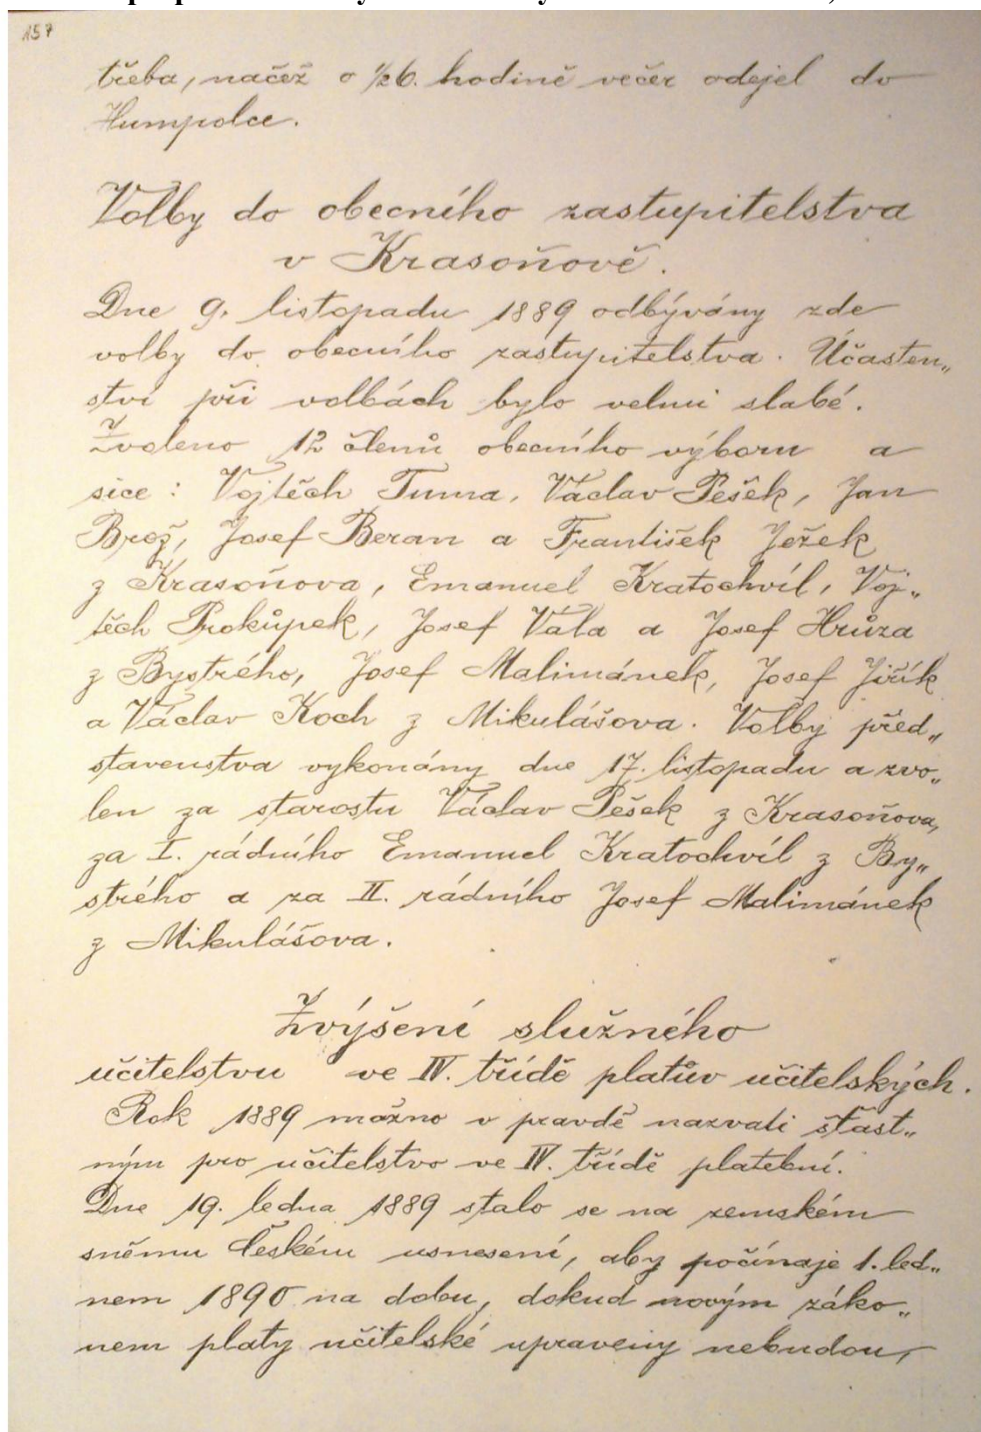 157
třeba, načež o ½6. hodině večer odejel do
Humpolce.
Volby do obecního zastupitelstva
v Krasoňově.
Dne 9. listopadu 1889 odbývány zde
volby do obecního zastupitelstva. Účasten„
ství při volbách bylo velmi slabé.
Zvoleno 12 členů obecního výboru a
sice: Vojtěch Tuma, Václav Pešek, Jan
Brož, Josef Beran a František Ježek
z Krasoňova, Emanuel Kratochvíl, Voj„
těch Prokůpek, Josef Vála a Josef Hrůza
z Bystrého, Josef Malimánek, Josef Jiřík
a Václav Koch z Mikulášova. Volby před„
stavenstva vykonány dne 17. listopadu a zvo„
len za starostu Václav Pešek z Krasoňova,
za I. rádního Emanuel Kratochvíl z By„
strého a za II. rádního Josef Malimánek
z Mikulášova.
Zvýšení služného
učitelstvu ve IV. třídě platův učitelských.
Rok 1889 možno v pravdě nazvati šťast„
ným pro učitelstvo ve IV. třídě platební.
Dne 19. ledna 1889 stalo se na zemském
sněmu českém usnesení, aby počínaje 1. led„
nem 1890 na dobu, dokud novým záko„
nem platy učitelské upraveny nebudou,